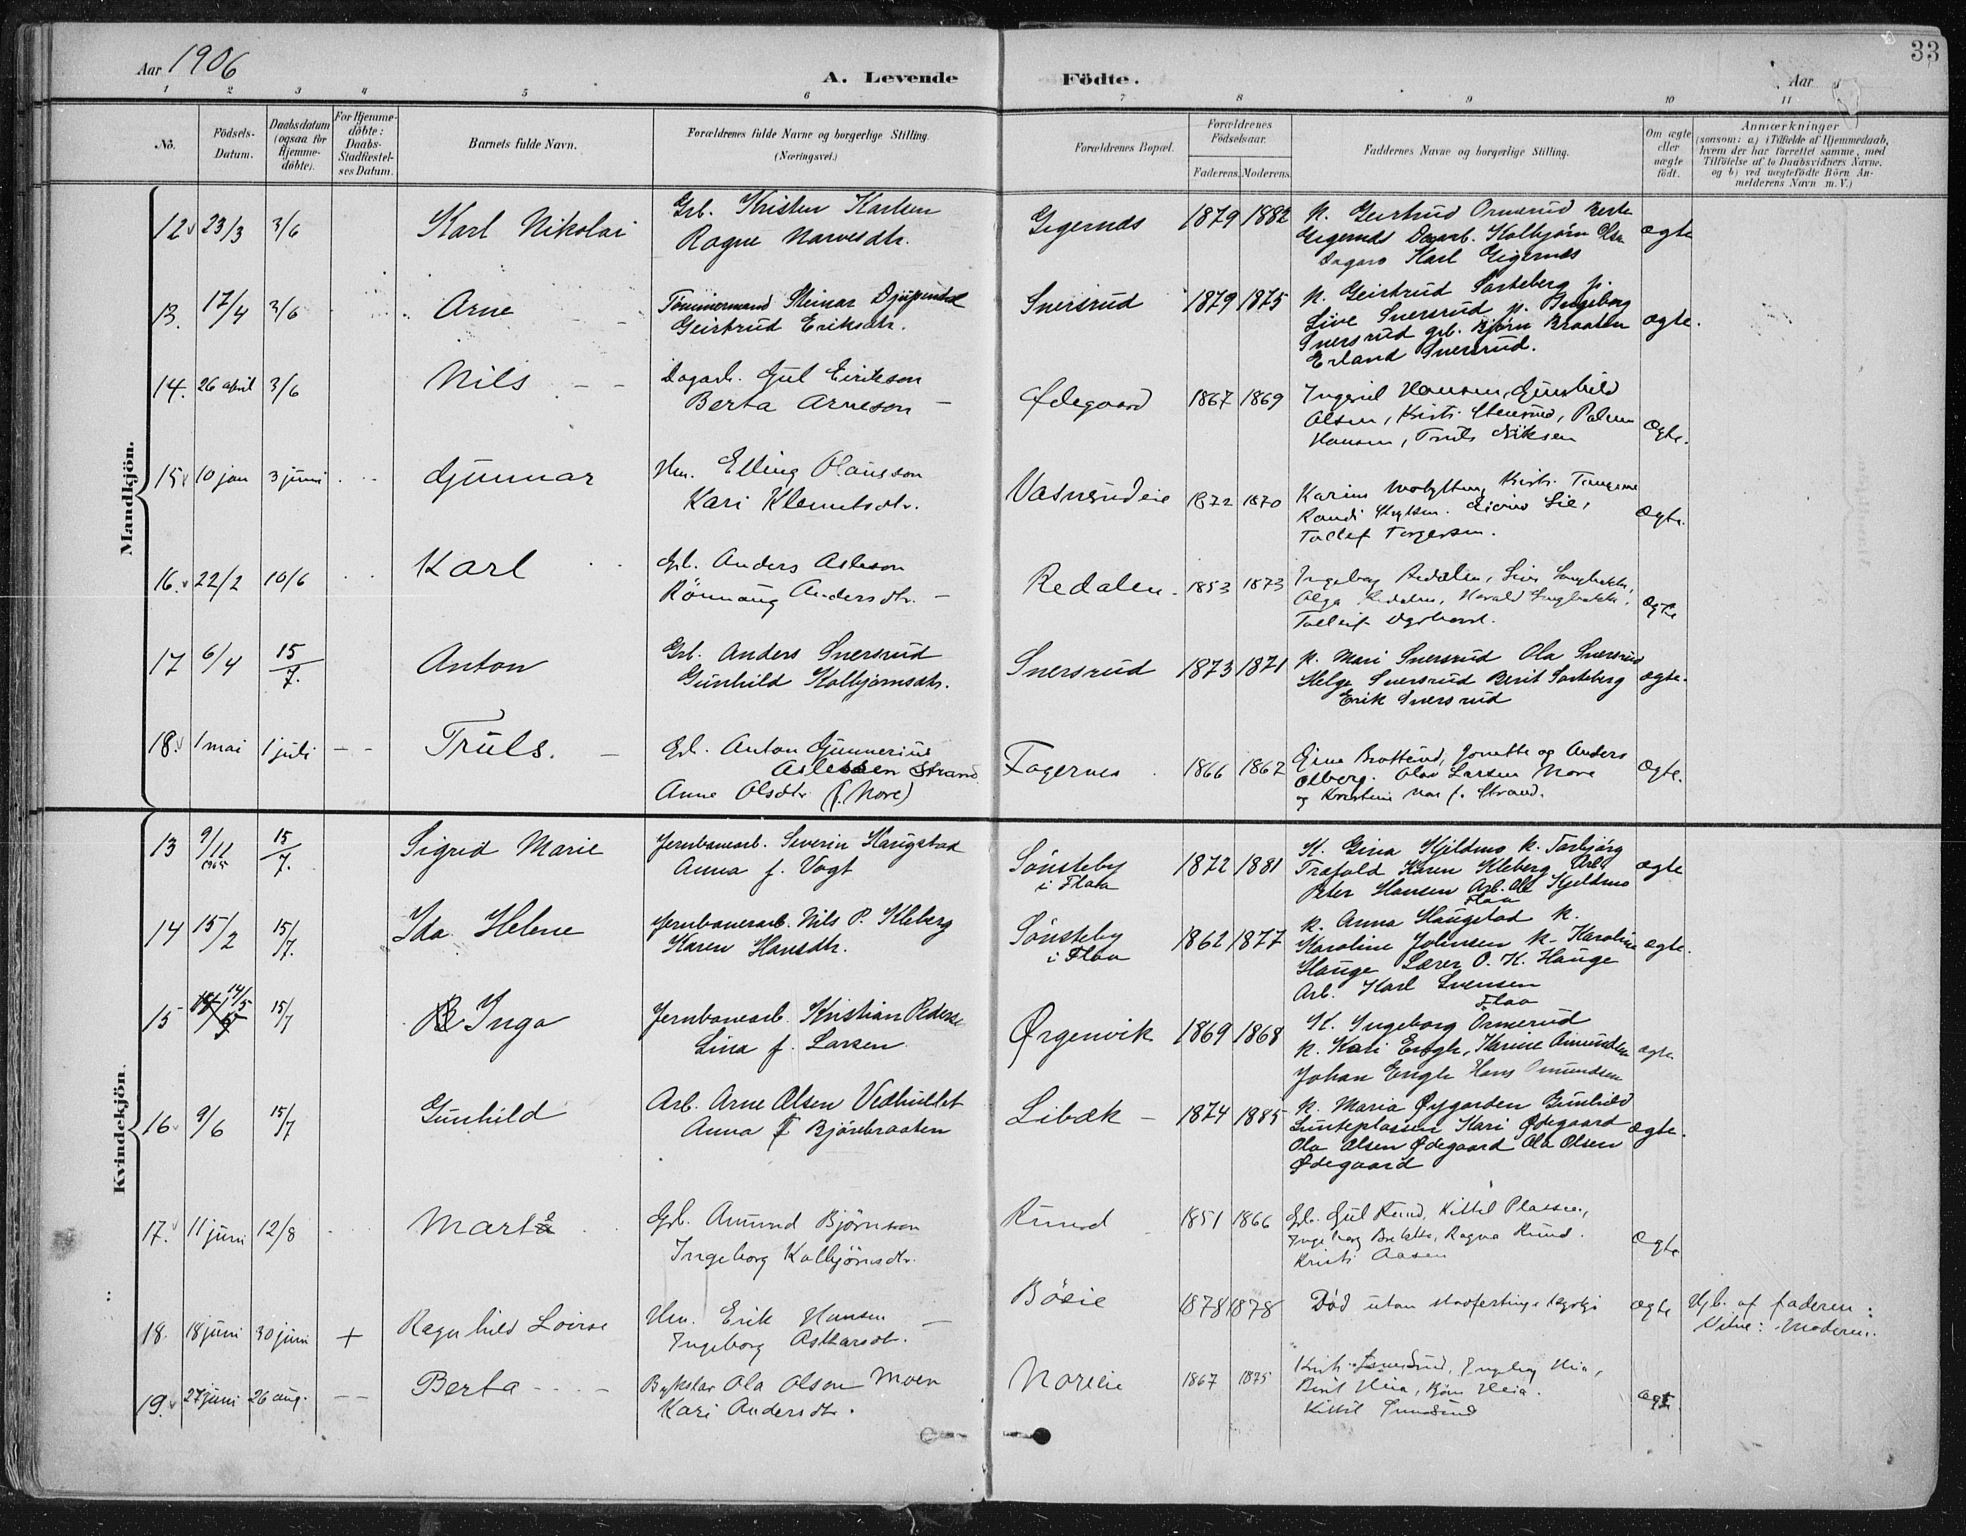 33
Aar 1906
A. Levende Födte.
Aar
1 2 3 4 5 6 7 8 9 10 11
No.
Födsels-Datum.
Daabsdatum (ogsaa for Hjemme-döbte).
For Hjemme-döbte: Daabs-Stadfæstel-ses Datum.
Barnets fulde Navn.
Forældrenes fulde Navne og borgerlige Stilling.
(Næringsvei.)
Forældrenes Bopæl.
Forældrenes Födselsaar.
Faderens. Moderens.
Faddernes Navne og borgerlige Stilling.
Om ægte eller uægte födt.
Anmærkninger
(saasom: a) i Tilfælde af Hjemmedaab, hvem der har forrettet samme, med Tilföielse af to Daabsvidners Navne, og b) ved uægtefödte Börn An-melderens Navn m. V.)
Mandkjön.
12 23/3 3/6 Karl Nikolai Grb. Kristen Karlsen
Ragne Narvesdtr.
Gigernds 1879 1882 K. Geirtrud Ormerud Berte
Gigernds Dagarb. Kolbjörn
Dagarb Karl Gigernds
ægte
13. 17/4 3/6 Arne Tömmermand Steinar Djupendal
Geirtrud Eriksdtr.
Snersrud 1879 1875 K. Geirtrud Sarteberg p.
Live Snersrud p. Ingeborg
Snersrud grb. Björn Braaten
Erland Snersrud.
ægte.
14. 26 april 3/6 Nils Dagarb. Gul Eirikson
Berta Arneson
Ødegaard 1867 1869 Ingerid Hansen, Gunhild
Olsen, Kristi Stensrud, Palm
Hansen, Truls Eriksen
Ægte.
15 10 jan 3 juni Gunnar Hm. Elling Olausson
Kari Klemetsdtr.
Vasnrudeie 1872 1870 Karine Kristi
Randi Lie,
Tollef Torgersen.
Ægte.
16. 22/2 10/6 Karl Gb. Anders Asleson
Rönnaug Andersdtr.
Redalen 1853 1873 Ingeborg Redalen, Live
Olga Redalen, Harald
Tolleif
Ægte
17 6/4 15/7. Anton Grb. Anders Snersrud
Gunhild Kolbjörnsdtr.
Snersrud 1873 1871 K. Mari Snersrud Ola Snersrud
Helge Snersrud Berit Sarteberg
Erik Snersrud
ægte.
18. 1 mai 1 juli Truls. Gb. Anton Gunnerius
Aslesen Strand
Anne Olsdtr (f. More)
Fagernes 1866 1862 Gina Brattrud, Jonette og Anders
Olberg. Olav Larsen More
og Kristine Mor f. Strand.
Ægte.
Kvindekjön.
13 9/11 1905 15/7. Sigrid Marie Jernbanearb. Severin Haugstad
Anna f. Vogt
Sönsteby
i Flaa
1872 1881 K. Gina Kjeldmo K. Torbjörg
Trafald Karen Kleberg Arb.
Peter Hansen Arb. Ole Kjeldmo
Flaa
ægte
14 15/2 15/7. Ida Helene Jernbanearb. Nils P. Kleberg
Karen Hansdtr.
Sönsteby
i Flaa
1862 1877 K. Anna Haugstad K.
Karoline Johnsen K. Karoline
Hauge Lærer O. K. Hauge
Arb. Karl Svensen
Flaa
ægte.
15 14/5 15/7 Inga Jernbanearb. Kristian Peders
Lina f. Larsen.
Ørgenvik 1869 1868 K. Ingeborg Ormerud
K. Kari Engh, Karine Amundsen
Johan Engh Hans Omundsen
ægte.
16 9/6 15/7 Gunhild Arb. Arne Olsen Vedhullet
Anna f Björebraaten
Libæk 1874 1885 K. Maria Øygarden Gunhild
Lunteplassen Kari Ødegaard
Ola Olsen Ødegaard Ola Olsen
Ødegaard
ægte.
17. 11 juni 12/8 Marta Gb. Amund Björnson
Ingeborg Kolbjörnsdtr.
Rund 1851 1866 Gb. Gul Rund, Kittil Plassen,
Ingeborg Ragna Rund.
Kristi Aasen
Ægte
18. 18 juni 30 juni + Ragnhild Lovise Hm. Erik Hansen
Ingeborg Aslaksdt.
Böeie 1878 1878 Död utan stadfesting i kyrkja ægte Hjb. af faderen:
Vitne: Moderen.
19. 27 juni 26 aug. Berta Bykslar Ola Olson Moen
Kari Andersdtr.
Noreie 1867 1875 Kristi Ingeborg Heia,
Berit Heia, Björn Heia.
Kittil
ægt